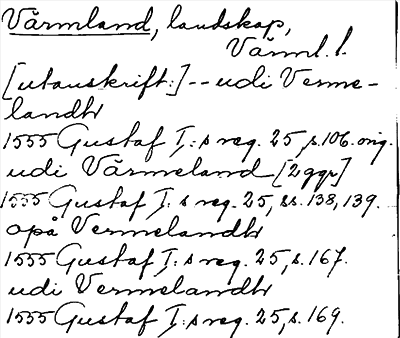 Värmland, landskap,
Värml. l.
[utanskrift:] -- udi Verme-
landh
1555 Gustaf I:s reg. 25, s. 106. orig.
udi Värmeland [2 ggr]
1555 Gustaf I:s reg. 25, ss. 138, 139.
opå Vermelandh
1555 Gustaf I:s reg. 25, s. 167.
udi Vermelandh
1555 Gustaf I:s reg. 25, s. 169.